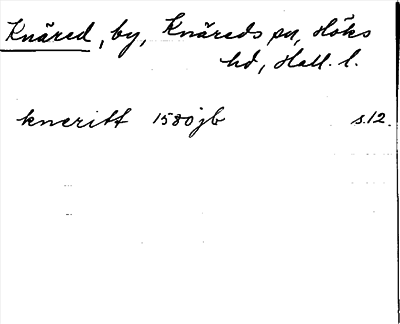 Knäred, by, Knäreds sn, Höks
hd, Hall. l.
kneritt 1580 jb s.12.